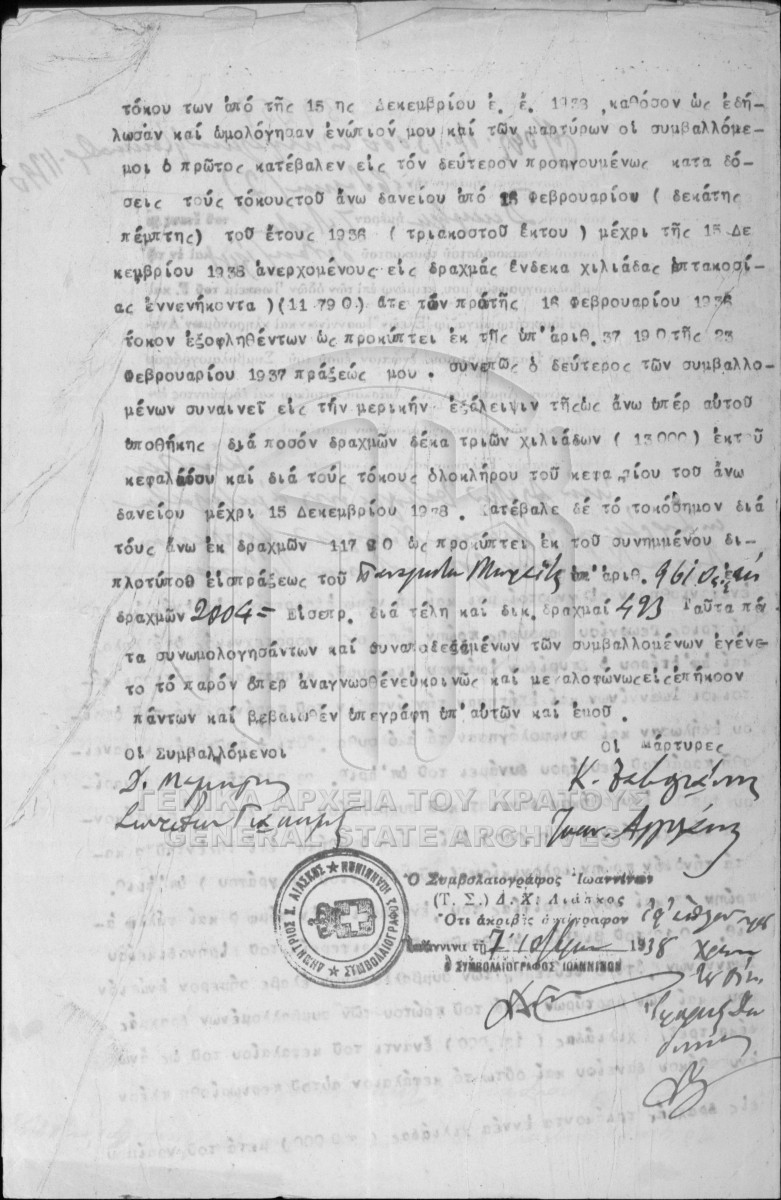 τόκου των ἀπό τῆς 15 ης Δεκεμβρίου ἐ. ἔ. 1938 ,καθόσον ὡς ἐδή-
λωσαν καί ὡμολόγησαν ἐνώπιόν μου καί τῶν μαρτύρων οἱ συμβαλλόμε-
μοι ὁ πρῶτος κατέβαλεν εἰς τόν δεύτερον προηγουμένως κατα δό-
σεις τούς τόκουςτοῦ ἄνω δανείου ἀπό 15 Φεβρουαρίου ( δεκάτης
πέμπτης) τοῦ ἔτους 1936 ( τριακοστοῦ ἕκτου ) μέχρι τῆς 15 Δε
κεμβρίου 1938 ἀνερχομένους εἰς δραχμάς ἕνδεκα χιλιάδας ἑπτακοσί-
ας ἐννενήκοντα )(11.790.) ἅτε τῶν πρώτης 16 Φεβρουαρίου 1936
τόκον ἐξοφληθέντων ὡς προκύπτει ἐκ τῆς ὑπ'ἀριθ. 37190 τῆς 23
Φεβρουαρίου 1937 πράξεώς μου . συνεπῶς ὁ δεύτερος τῶν συμβαλλο-
μένων συναινεῖ εἰς τήν μερικήν ἐξάλειψιν τῆςὡς ἄνω ὑπέρ αὐτοῦ
ὑποθήκης διά ποσόν δραχμῶν δέκα τριῶν χιλιάδων ( 13000) ἐκτοῦ
κεφαλαίου καί διά τούς τόκους ὁλοκλήρου τοῦ κεφαλαίου τοῦ ἄνω
δανείου μέχρι 15 Δεκεμβρίου 1938 . Κατέβαλε δέ τό τοκόσημον διά
τούς ἄνω ἐκ δραχμῶν 11790 ὡς προκύπτει ἐκ τοῦ συνημμένου δι-
πλοτύπου εἰσπράξεως τοῦ ὑπ'ἀριθ. 961
δραχμῶν 2004= Εἰσεπρ. διά τέλη καί δικ. δραχμαί 493 Ταῦτα πάν
τα συνωμολογησάντων καί συναποδεξαμένων τῶν συμβαλλομένων ἐγένε-
το τό παρόν ὅπερ ἀναγνωσθένεὐκρινῶς καί μεγαλοφώνως εἰς ἐπήκοον
πάντων καί βεβαιωθέν ὑπεγράφη ὑπ'αὐτῶν καί ἐμοῦ .
Οἱ Συμβαλλόμενοι
Οἱ μάρτυρες
ΓΕΝΙΚΑ ΑΡΧΕΙΑ ΤΟΥ ΚΡΑΤΟΥΣ
GENERAL STATE ARCHIVES
Ὁ Συμβολαιογράφος Ἰωαννίνων
(Τ. Σ.) Δ. Χ. Λιάσκος
Ὅτι ἀκριβές ἀντίγραφον
Ἰωάννινα τῇ 7 1938
Ὁ ΣΥΜΒΟΛΑΙΟΓΡΑΦΟΣ ΙΩΑΝΝΙΝΩΝ
ΔΗΜΗΤΡΙΟΣ Χ. ΛΙΑΣΚΟΣ ★ ΣΥΜΒΟΛΑΙΟΓΡΑΦΟΣ ΙΩΑΝΝΙΝΩΝ ★